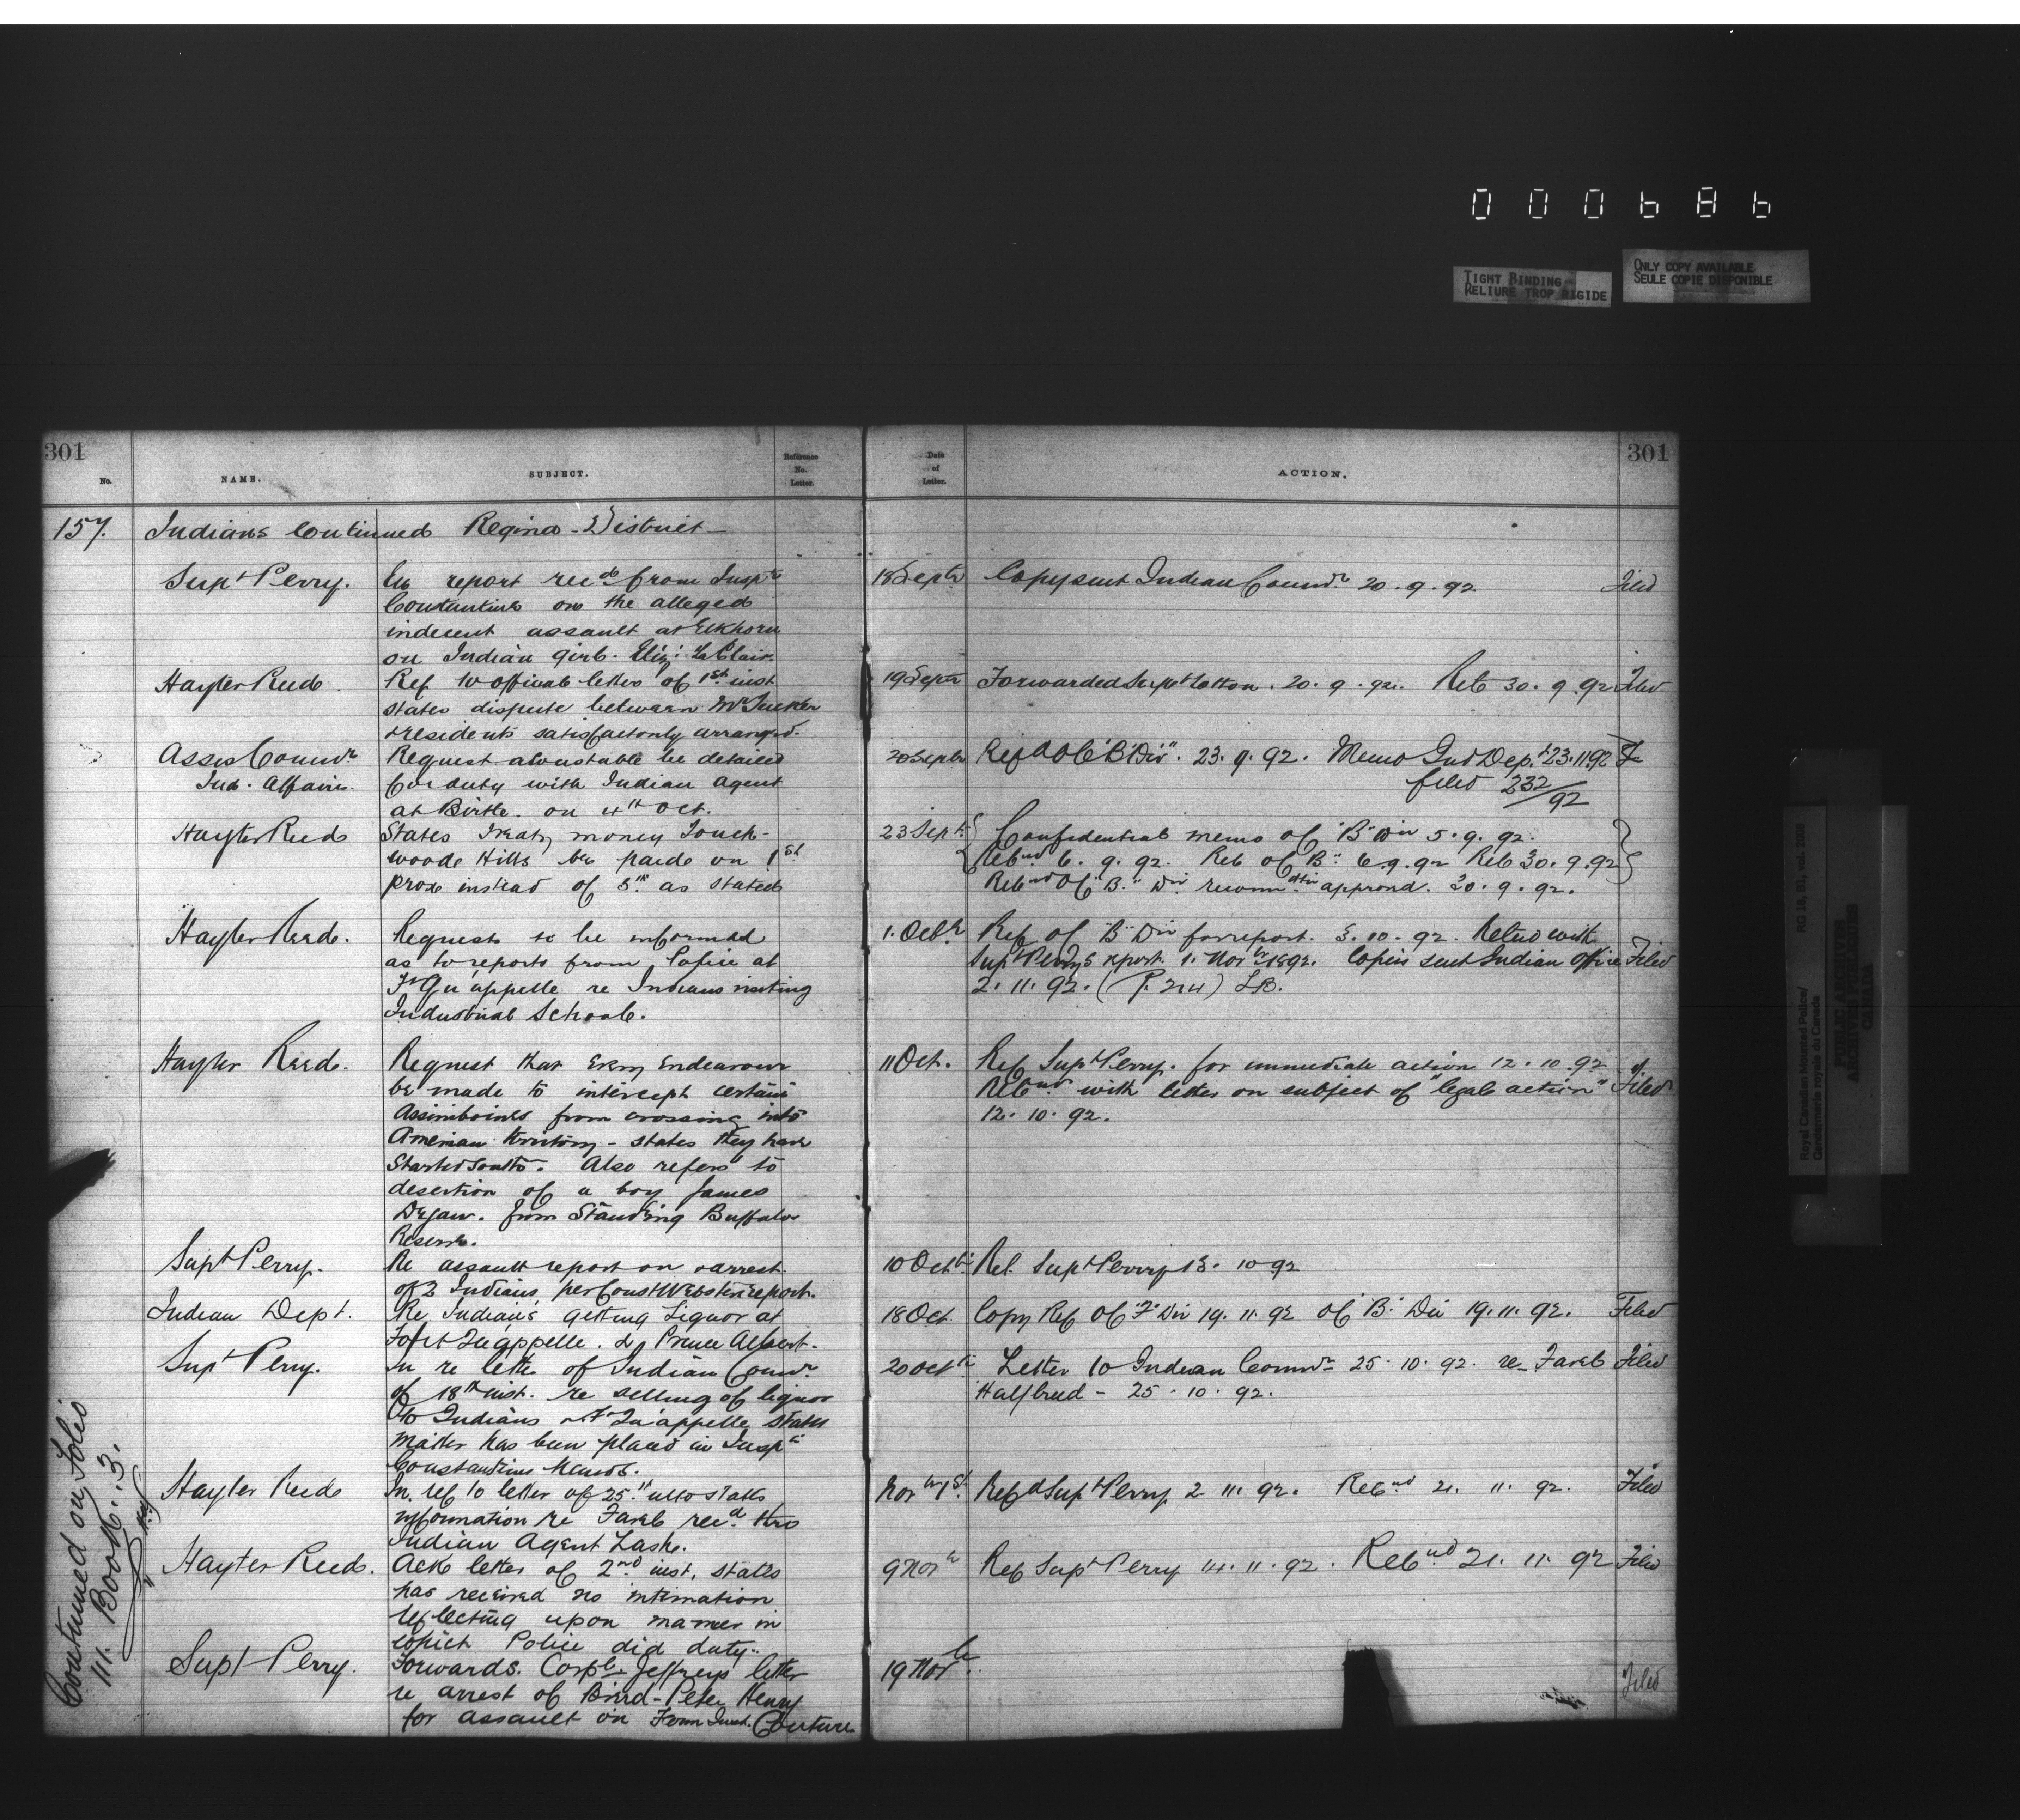 000686
TIGHT BINDING
RELIURE TROP RIGIDE
ONLY COPY AVAILABLE
SEULE COPIE DISPONIBLE
301
No.
NAME.
SUBJECT.
Reference
No.
Letter.
Date
of
Letter.
ACTION.
301
157. Indians Continued Regina - District -
Supt Perry. report recd from Inspr
Constantine on the alleged
indecent assault at Elkhorn
on Indian girl. Eliz: LaClair.
18 Septr Copy sent Indian Commr 20.9.92 Filed
Hayter Reed. Ref to official letter of 1st inst
states dispute between
residents satisfactorily arranged.
19 Septr Forwarded Supt Cotton. 20.9.92. Retd 30.9.92 Filed
Asses Commr Request a Constable be detailed
Ind. Affairs. for duty with Indian Agent
at Birtle. on 4th Oct.
20 Septr Refd O C "B" Div". 23.9.92. Memo Ind Dept 23.11.92
filed 232/92
Hayter Reed States Treaty money Touch-
woods Hills be paid on 1st
prox instead of 5th as stated
23 Sept. Confidential memo Of "B" Div 5.9.92.
Retnd 6.9.92. Ref Of "B" 6.9.92 Ret 30.9.92
Retnd Of "B." Div. approved. 30.9.92.
Hayter Reed. Requests to be informed
as to reports from Police at
Ft Qu'appelle re Indians visiting
Industrial School.
1. Octr. Ref Of "B" Div for report. 3.10.92. Retnd with
Supt Perrys report. 1. Novbr 1892. Copies sent Indian Office Filed
2.11.92. (P. 214) LB.
Hayter Reed. Request that every endeavour
be made to intercept certain
Assiniboines from crossing into
American territory - states they have
started South. Also refers to
desertion of a boy James
Dejaw. from Standing Buffalo
Reserve.
11 Oct. Ref Supt Perry. for immediate action 12.10.92
Retnd with letter on subject of "legal action" Filed
12.10.92.
Supt Perry. Re assault report on arrest
of 2 Indians per Const Websters report.
10 Oct Ret. Supt Perry 13.10.92
Indian Dept. Re Indians getting Liquor at
Fort Qu'appelle. & Prince Albert.
18 Oct. Copy Ref Of "F" Div 19.11.92 Of "B" Div 19.11.92. Filed
Supt Perry. In re letter of Indian Commr
of 18th inst. re selling of liquor
to Indians at Ft Qu'appelle states
matter has been placed in Inspr
Constantines hands.
20 Oct Letter to Indian Commr 25.10.92. re Filed
Halfbreed - 25.10.92.
Hayter Reed In ref to letter of 25th ulto states
information re recd thro
Indian Agent Lash.
Nov 1st. Refd Supt Perry 2.11.92. Retnd 21.11.92. Filed
Hayter Reed. Ack letter of 2nd inst, states
has received no intimation
reflecting upon manner in
which Police did duty.
9 Nov Ref Supt Perry 14.11.92. Retnd 21.11.92 Filed
Supt Perry. Forwards. Corpl. Jeffreys letter
re arrest of Bird - Peter Henry
for assault on Farm Inst. Couture
19 Nov. Filed
Continued on Folio
111. Book. 3.
Royal Canadian Mounted Police/
Gendarmerie royale du Canada
RG 18, B1, vol. 2008
PUBLIC ARCHIVES
ARCHIVES PUBLIQUES
CANADA